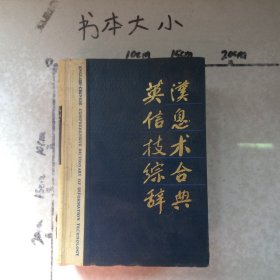 书本大小
10cm 15cm 20cm
ENGLISH-CHINESE COMPREHENSIVE DICTIONARY OF INFORMATION TECHNOLOGY
英漢
信息
技术
综合
辞典